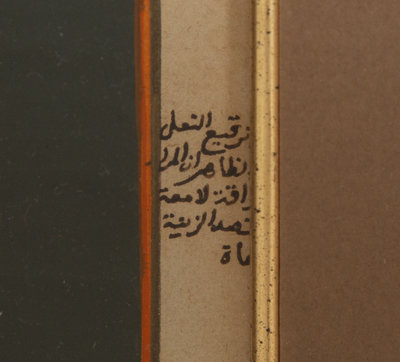 ترقيع النعلى
لظاهر ان المرا
راقة لامعة
قصد الزينة
ماة